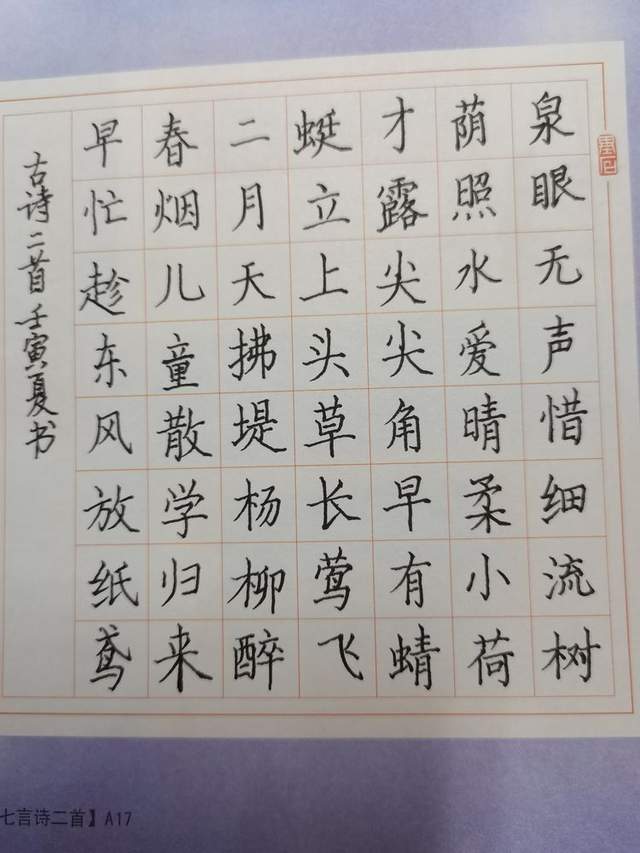 泉眼无声惜细流树
荫照水爱晴柔小荷
才露尖尖角早有蜻
蜓立上头草长莺飞
二月天拂堤杨柳醉
春烟儿童散学归来
早忙趁东风放纸鸢
古诗二首 壬寅夏书
七言诗二首】A17